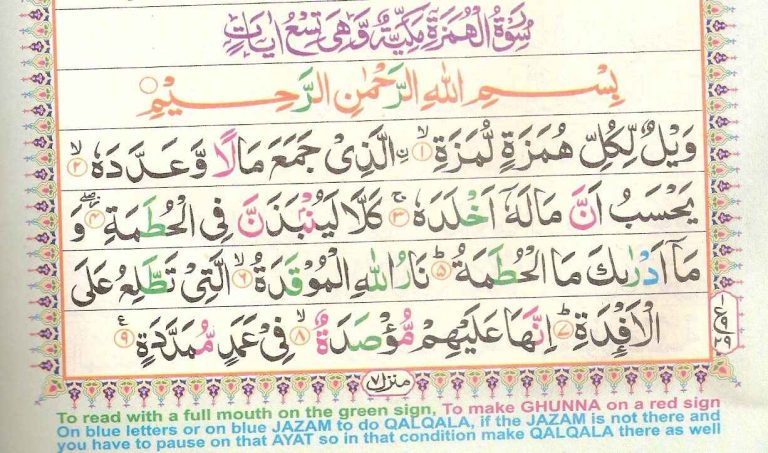 سُوْرَةُ الْهُمَزَةِ مَكِّيَّةٌ وَّهِىَ تِسْعُ اٰيَاتٍ
بِسْمِ اللهِ الرَّحْمٰنِ الرَّحِيْمِ
وَيْلٌ لِّكُلِّ هُمَزَةٍ لُّمَزَةِ ۙ﴿۱﴾ ۨالَّذِىْ جَمَعَ مَالًا وَّعَدَّدَهٗ ۙ﴿۲﴾
يَحْسَبُ اَنَّ مَالَهٗۤ اَخْلَدَهٗ ۚ﴿۳﴾ كَلَّا لَيُنْۢبَذَنَّ فِى الْحُطَمَةِ ۖ﴿۴﴾ وَ
مَاۤ اَدْرٰىكَ مَا الْحُطَمَةُ ؕ﴿۵﴾ نَارُ اللهِ الْمُوْقَدَةُ ۙ﴿۶﴾ الَّتِىْ تَطَّلِعُ عَلَى
الْاَفْـِٕدَةِ ؕ﴿۷﴾ اِنَّهَا عَلَيْهِمْ مُّؤْصَدَةٌ ۙ﴿۸﴾ فِىْ عَمَدٍ مُّمَدَّدَةٍ ﴿۹﴾ ع
۹
۲۹
منزل ۷
To read with a full mouth on the green sign, To make GHUNNA on a red sign
On blue letters or on blue JAZAM to do QALQALA, if the JAZAM is not there and
you have to pause on that AYAT so in that condition make QALQALA there as well